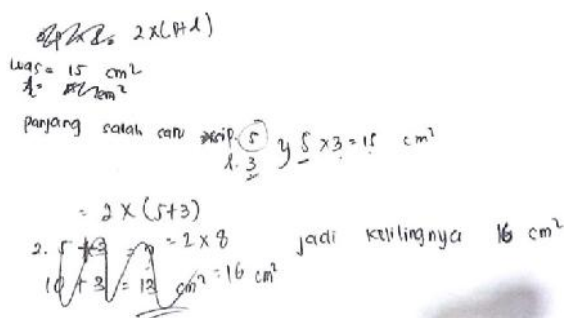 2 x (P+l)
Luas = 15 cm²
cm²
panjang salah satu p. 5 5 x 3 = 15 cm²
l. 3
= 2 x (5+3)
2. 5 + 3 = 2 x 8 jadi kelilingnya 16 cm²
10 + 3 = 13 cm² = 16 cm²